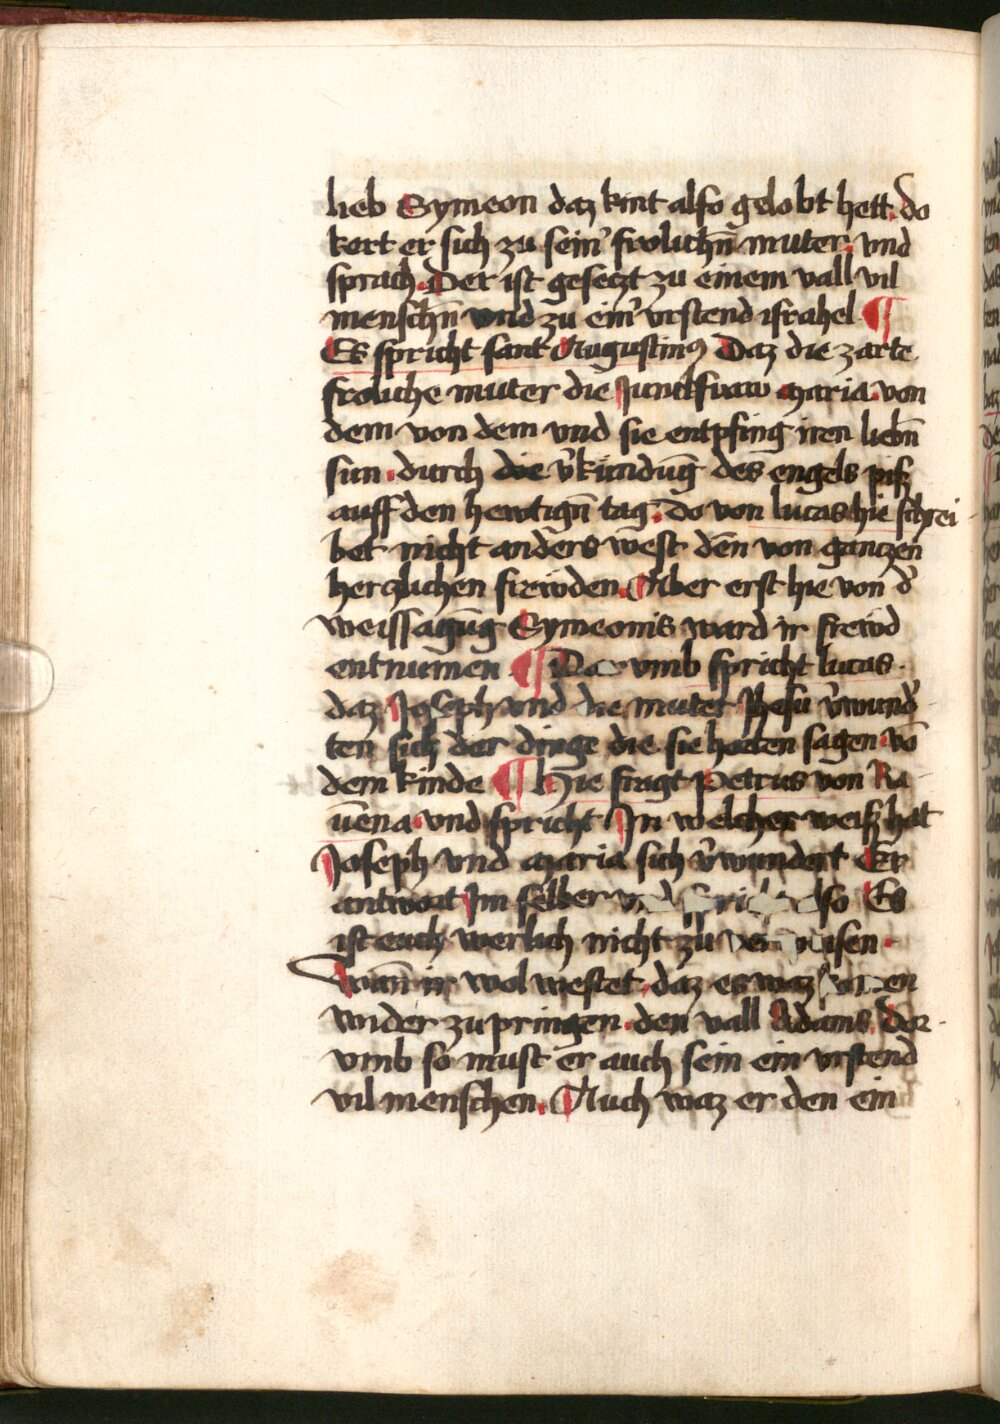 lieb Symeon daz kint also gelobt hett. do
kert er sich zu seinˀ frolichn̄ muter. vnd
sprach. Der ist geseczt zu einem vall vil
menschn̄ vnd zu einˀ vrstend israhel ¶
Es spricht sant Augustinꝰ Daz die zarte
froliche muter die Junckfraw maria. von
dem von dem vnd sie entpfing iren liebn̄
sun. durch die v̾kündūg des engels piß
auff den hewtign̄ tag. do von lucas hie schrei
bet nicht anders west den̄ von ganczen
herczlichen frewden. Aber erst hie von dˀ
weissagūg Symeonis ward ir frewd
entnumen ¶ Dar vmb spricht lucas.
daz Joseph vnd die muter Jhesu v̾wundˀ
ten sich der dinge die sie horten sagen. vō
dem kinde ¶ Hie fragt Petrus von Ra
uena. vnd spricht In welcher weiß hat
Joseph vnd maria sich v̾wundert Er
antwort Jm selber vnd spricht also Es
ist euch werlich nicht zu
wan̄ ir wol westet. daz es waz en
wider zu pringen. den vall Adams. dor
vmb so must er auch sein ein vrstend
vil menschen. Auch waz er den ein